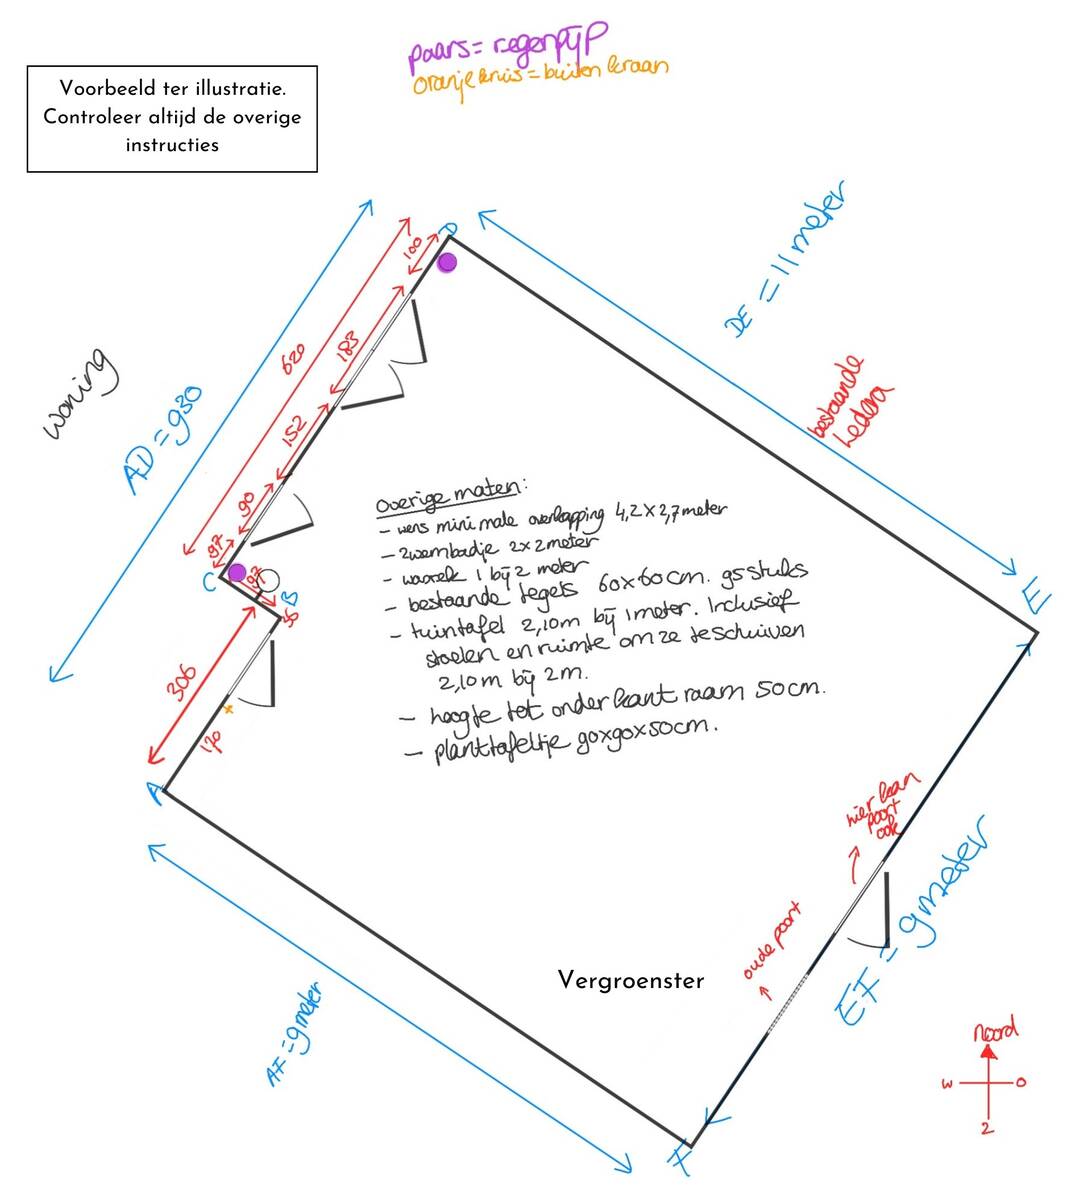 paars = regenpijp
oranje kruis = buiten kraan
Voorbeeld ter illustratie.
Controleer altijd de overige
instructies
D
100
DE = 11 meter
183
620
woning
AD = 930
152
bestaande
hedera
90
97
C
97
B
36
E
Overige maten:
- wens minimale overkapping 4,2 x 2,7 meter
- zwembadje 2x2 meter
- 1 bij 2 meter
- bestaande tegels 60x60cm. 95 stuks
- tuintafel 2,10m bij 1 meter. Inclusief
stoelen en ruimte om ze te schuiven
2,10m bij 2m.
- hoogte tot onderkant raam 50cm.
- planttafeltje 90x90x50cm.
306
170
A
hier kan
poort
ook
oude poort
EF = 9 meter
Vergroenster
AF = 9 meter
F
noord
W
O
Z